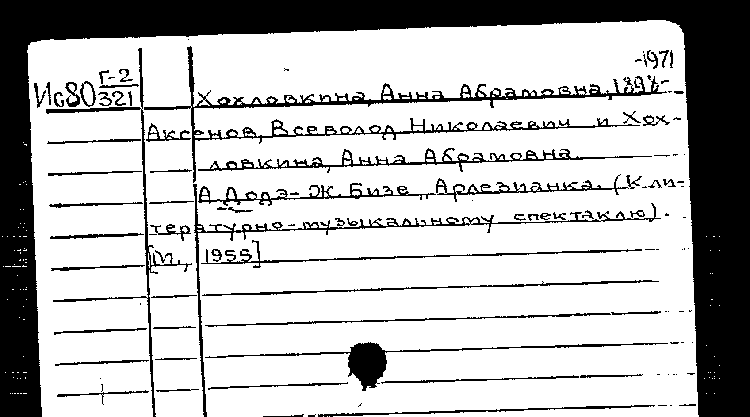 -1971
Ис80 Г-2/321 Хохловкина, Анна Абрамовна, 1898-
Аксенов, Всеволод Николаевич и Хох-
ловкина, Анна Абрамовна.
А. Додэ - Ж. Бизе „Арлезианка. (К ли-
тературно-музыкальному спектаклю).
[М., 1955]